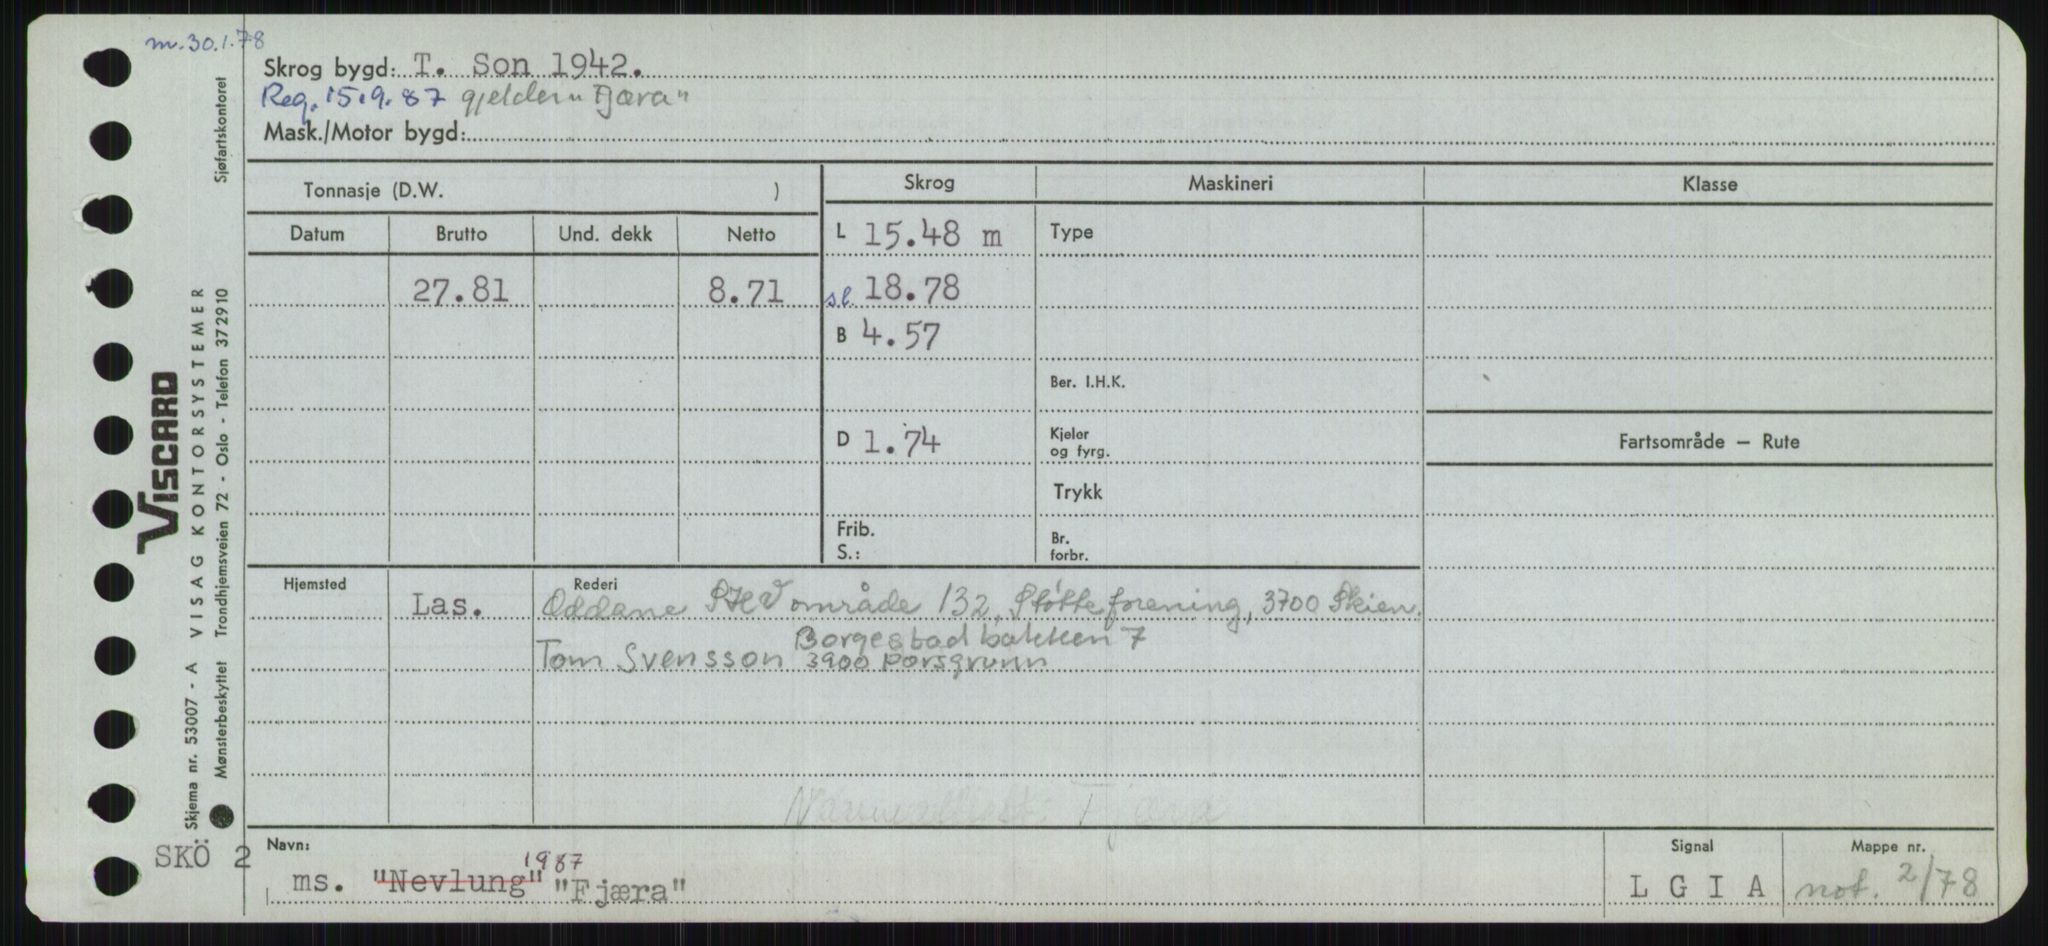 m. 30.1.78
Skrog bygd: T. Son 1942.
Reg. 15.9.87 gjelder "Fjæra"
Mask./Motor bygd:
Sjøfartskontoret
Tonnasje (D.W. )
Skrog
Maskineri
Klasse
Datum Brutto Und. dekk Netto
L 15.48 m
Type
27.81 8.71
sl. 18.78
B 4.57
Ber. I.H.K.
D 1.74
Kjeler
og fyrg.
Fartsområde — Rute
Trykk
Frib.
S.:
Br.
forbr.
Hjemsted
Rederi
Las. Oddane SHV område 132, Støtteforening, 3700 Skien.
Borgestadbakken 7
Tom Svensson 3900 Porsgrunn
Fjæra
Navn:
Signal
Mappe nr.
1987
ms. "Nevlung" "Fjæra"
L G I A
not. 2/78
SKÖ 2
VISCARD
Skjema nr. 53007 - A VISAG KONTORSYSTEMER
Mønsterbeskyttet Trondhjemsveien 72 - Oslo - Telefon 372910